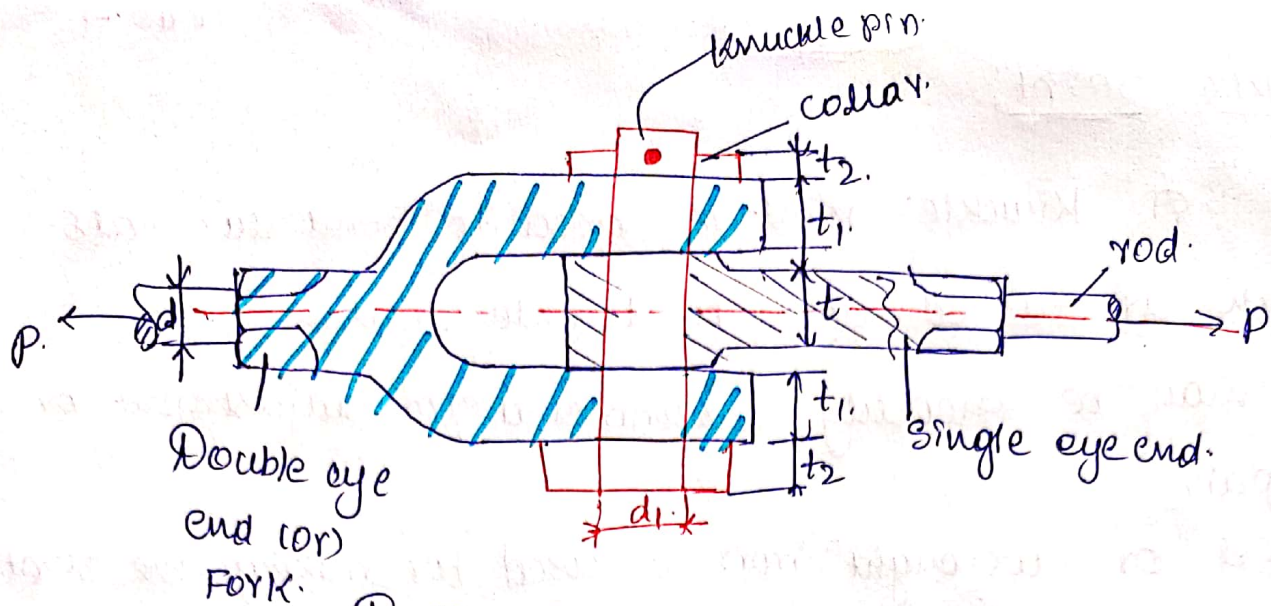 Knuckle pin.
collar.
t2.
t1.
rod.
d
t
P.
P
t1.
single eye end.
t2
Double eye
end (or)
FORK.
d1.